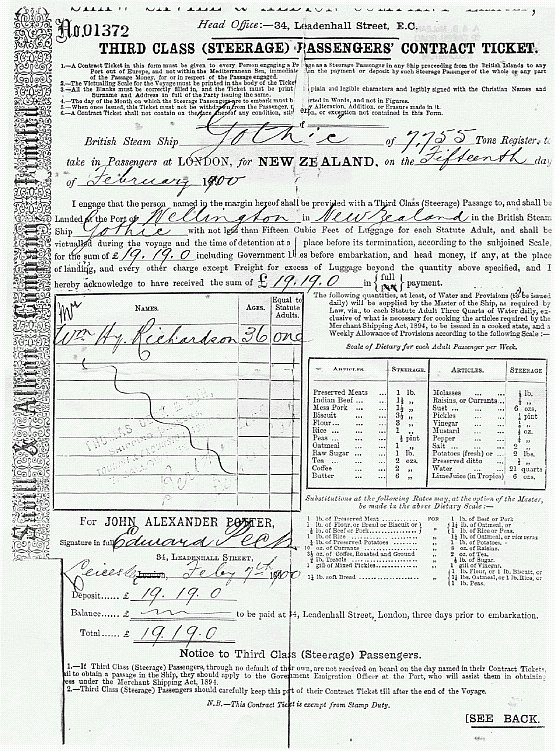 No. 01372
Head Office:—34, Leadenhall Street, E.C.
THIRD CLASS (STEERAGE) PASSENGERS' CONTRACT TICKET.
1.—A Contract Ticket in this form must be given to every Person engaging a Passage as a Steerage Passenger in any Ship proceeding from the British Islands to any
Port out of Europe, and not within the Mediterranean Sea, immediately on the payment or deposit by such Steerage Passenger of the whole or any part
of the Passage Money, for or in respect of the Passage engaged.
2.—The Victualling Scale for the Voyage must be printed in the body of the Ticket
3.—All the Blanks must be correctly filled in, and the Ticket must be plain and legible characters and legibly signed with the Christian Names and
Surname and Address in full of the Party issuing the same.
4.—The day of the Month on which the Steerage Passengers to embark must be inserted in Words, and not in Figures.
5.—When once issued, this Ticket must not be withdrawn from the Passenger, nor any Alteration, Addition, or Erasure made in it.
6.—A Contract Ticket shall not contain on the face thereof any condition, or exception not contained in this Form.
British Steam Ship Gothic of 7,755 Tons Register, to
take in Passengers at LONDON, for NEW ZEALAND, on the Fifteenth day
of February 1900
I engage that the person named in the margin hereof shall be provided with a Third Class (Steerage) Passage to, and shall be
Landed at the Port of Wellington in New Zealand in the British Steam
Ship Gothic with not less than Fifteen Cubic Feet of Luggage for each Statute Adult, and shall be
victualled during the voyage and the time of detention at any place before its termination, according to the subjoined Scale,
for the sum of £19.19.0 including Government before embarkation, and head money, if any, at the place
of landing, and every other charge except Freight for excess of Luggage beyond the quantity above specified, and I
hereby acknowledge to have received the sum of £19.19.0 in full payment.
NAMES. AGES. Equal to Statute Adults.
Mr
Wm Hy. Richardson 36 one
The following quantities, at least, of Water and Provisions (to be issued
daily) will be supplied by the Master of the Ship, as required by
Law, viz., to each Statute Adult Three Quarts of Water daily, ex-
clusive of what is necessary for cooking the articles required by the
Merchant Shipping Act, 1894, to be issued in a cooked state, and a
Weekly Allowance of Provisions according to the following Scale:—
Scale of Dietary for each Adult Passenger per Week.
ARTICLES. STEERAGE. ARTICLES. STEERAGE
Preserved Meats 1 lb. Molasses ½ lb.
Indian Beef 1½ „ Raisins, or Currants
Mess Pork Suet 6 ozs.
Biscuit Pickles pint
Flour 3 „ Vinegar
Rice 1 „ Mustard ½ oz.
Peas pint Pepper
Oatmeal 1 Salt 2 „
Raw Sugar 1 lb. Potatoes (fresh) or 2 lbs.
Tea 2 ozs. Preserved ditto
Coffee 2 „ Water 21 quarts
Butter 6 „ LimeJuice (in Tropics) 6 ozs.
Substitutions at the following Rates may, at the option of the Master,
be made in the above Dietary Scale:—
1 lb. of Preserved Meat FOR 1 lb. of Beef or Pork
For JOHN ALEXANDER POTTER,
Signature in full Edward Peck
34, LEADENHALL STREET,
Leicester, Feby 7th 1900
Deposit £ 19.19.0
Balance £ to be paid at 34, Leadenhall Street, London, three days prior to embarkation.
Total £ 19.19.0
Notice to Third Class (Steerage) Passengers.
1.—If Third Class (Steerage) Passengers, through no default of their own, are not received on board on the day named in their Contract Tickets,
fail to obtain a passage in the Ship, they should apply to the Government Emigration Officer at the Port, who will assist them in obtaining
under the Merchant Shipping Act, 1894.
2.—Third Class (Steerage) Passengers should carefully keep this part of their Contract Ticket till after the end of the Voyage.
N.B.—This Contract Ticket is exempt from Stamp Duty.
[SEE BACK.
Shaw, Savill & Albion Company Limited